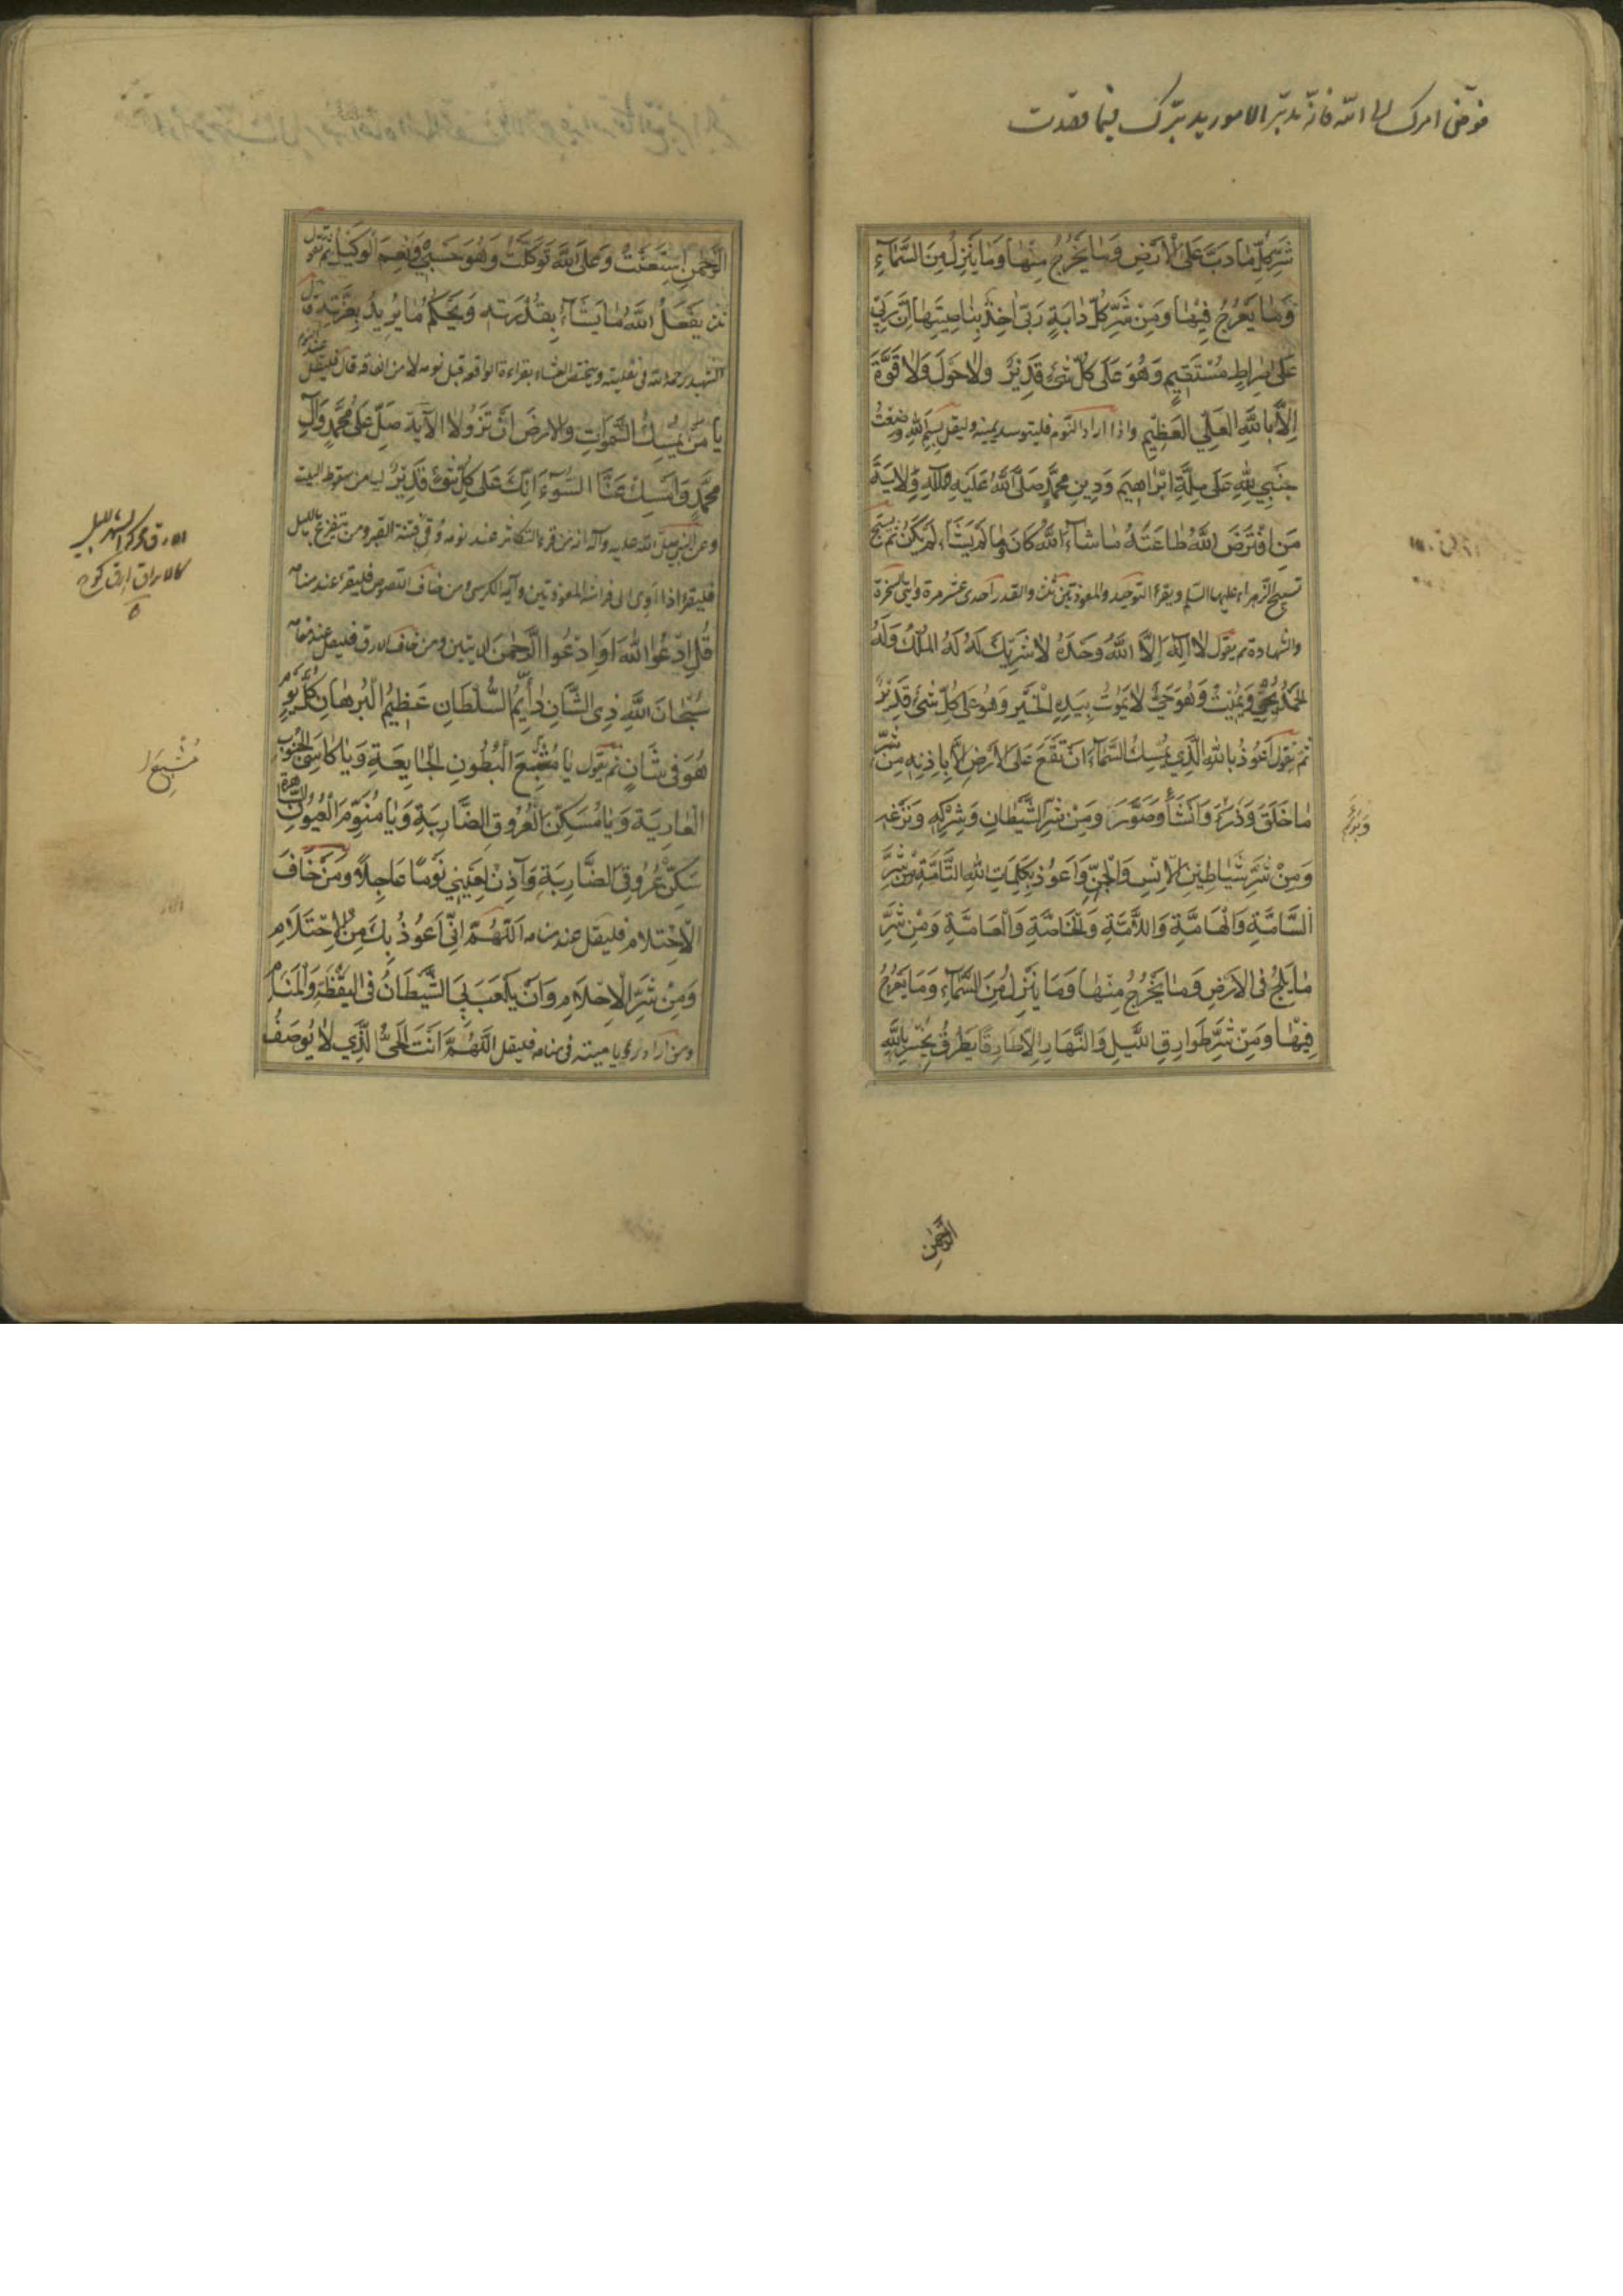 فوّض امرك الى الله فانه يدبّر الامور يدبّرك فيما قصدت
شَرِّ كُلِّ مَا دَبَّ عَلَى الْأَرْضِ وَمَا يَخْرُجُ مِنْهَا وَمَا يَنْزِلُ مِنَ السَّمَاءِ
وَمَا يَعْرُجُ فِيهَا وَمِنْ شَرِّ كُلِّ دَابَّةٍ رَبِّي اخِذٌ بِنَاصِيَتِهَا إِنَّ رَبِّي
عَلَى صِرَاطٍ مُسْتَقِيمٍ وَهُوَ عَلَى كُلِّ شَيْءٍ قَدِيرٌ وَلَا حَوْلَ وَلَا قُوَّةَ
إِلَّا بِاللَّهِ الْعَلِيِّ الْعَظِيمِ واذا اراد النوم فليتوسد يمينه وليقل بِسْمِ اللَّهِ وَضَعْتُ
جَنْبِي لِلَّهِ عَلَى مِلَّةِ إِبْرَاهِيمَ وَدِينِ مُحَمَّدٍ صَلَّى اللَّهُ عَلَيْهِ وَآلِهِ وَوِلَايَةِ
مَنِ افْتَرَضَ اللَّهُ طَاعَتَهُ مَا شَاءَ اللَّهُ كَانَ وَمَا لَمْ يَشَأْ لَمْ يَكُنْ ثم يسبح
تسبيح الزهراء عليها السلم ويقرء التوحيد والمعوذتين ثلث والقدر احدى عشر مرة وايتى السخرة
والشهادة ثم يقول لَا إِلَهَ إِلَّا اللَّهُ وَحْدَهُ لَا شَرِيكَ لَهُ لَهُ الْمُلْكُ وَلَهُ
الْحَمْدُ يُحْيِي وَيُمِيتُ وَهُوَ حَيٌّ لَا يَمُوتُ بِيَدِهِ الْخَيْرُ وَهُوَ عَلَى كُلِّ شَيْءٍ قَدِيرٌ
ثم يقول أَعُوذُ بِاللَّهِ الَّذِي يُمْسِكُ السَّمَاءَ أَنْ تَقَعَ عَلَى الْأَرْضِ إِلَّا بِإِذْنِهِ مِنْ شَرِّ
مَا خَلَقَ وَذَرَءَ وَأَنْشَأَ وَصَوَّرَ وَمِنْ شَرِّ الشَّيْطَانِ وَشِرْكِهِ وَنَزْغِهِ
وَمِنْ شَرِّ شَيَاطِينِ الْإِنْسِ وَالْجِنِّ وَأَعُوذُ بِكَلِمَاتِ اللَّهِ التَّامَّةِ مِنْ شَرِّ
السَّامَّةِ وَالْهَامَّةِ وَاللَّامَّةِ وَالْخَاصَّةِ وَالْعَامَّةِ وَمِنْ شَرِّ
مَا يَلِجُ فِي الْأَرْضِ وَمَا يَخْرُجُ مِنْهَا وَمَا يَنْزِلُ مِنَ السَّمَاءِ وَمَا يَعْرُجُ
فِيهَا وَمِنْ شَرِّ طَوَارِقِ اللَّيْلِ وَالنَّهَارِ إِلَّا طَارِقًا يَطْرُقُ بِخَيْرٍ بِاللَّهِ
الرَّحْمَنِ
الرَّحْمَنِ اسْتَعَنْتُ وَعَلَى اللَّهِ تَوَكَّلْتُ وَهُوَ حَسْبِي وَنِعْمَ الْوَكِيلُ ثم تقول
يَفْعَلُ اللَّهُ مَا يَشَاءُ بِقُدْرَتِهِ وَيَحْكُمُ مَا يُرِيدُ بِعِزَّتِهِ
الشهيد رحمه الله فى نفليته ويختص العشاء بقراءة الواقعه قبل نومه لامن الفاقه قال فليقل عند
يَا مَنْ يُمْسِكُ السَّمَوَاتِ وَالْأَرْضَ أَنْ تَزُولَا الآية صَلِّ عَلَى مُحَمَّدٍ وَآلِ
مُحَمَّدٍ وَأَمْسِكْ عَنَّا السُّوءَ إِنَّكَ عَلَى كُلِّ شَيْءٍ قَدِيرٌ ليامن سقوط البيت
وعن النبى صلى الله عليه وآله انه من قرء التكاثر عند نومه وقى فتنة القبر ومن يتفزع بالليل
فليقرء اذا آوى الى فراشه المعوذتين وآية الكرسى ومن خاف اللصوص فليقرء عند منامه
قُلِ ادْعُوا اللَّهَ أَوِ ادْعُوا الرَّحْمَنَ الايتين ومن خاف الارق فليقل عند منامه
سُبْحَانَ اللَّهِ ذِي الشَّانِ دَائِمِ السُّلْطَانِ عَظِيمِ الْبُرْهَانِ كُلَّ يَوْمٍ
هُوَ فِي شَانٍ ثم يقول يَا مُشْبِعَ الْبُطُونِ الْجَايِعَةِ وَيَا كَاسِيَ الْجُنُوبِ
الْعَارِيَةِ وَيَا مُسَكِّنَ الْعُرُوقِ الضَّارِبَةِ وَيَا مُنَوِّمَ الْعُيُونِ السَّاهِرَةِ
سَكِّنْ عُرُوقِيَ الضَّارِبَةَ وَآذِنْ لِعَيْنِي نَوْمًا عَاجِلًا ومن خاف
الاحتلام فليقل عند منامه اللَّهُمَّ إِنِّي أَعُوذُ بِكَ مِنَ الْإِحْتِلَامِ
وَمِنْ شَرِّ الْأَحْلَامِ وَأَنْ يَلْعَبَ بِيَ الشَّيْطَانُ فِي الْيَقْظَةِ وَالْمَنَامِ
ومن اراد رؤيا ميته فى منامه فليقل اللَّهُمَّ أَنْتَ الْحَيُّ الَّذِي لَا يُوصَفُ
مُشْبِعَ